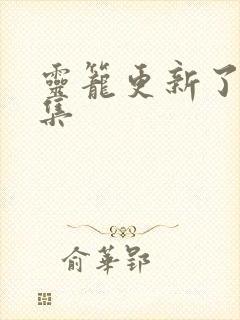 靈籠更新了
集
俞華郢